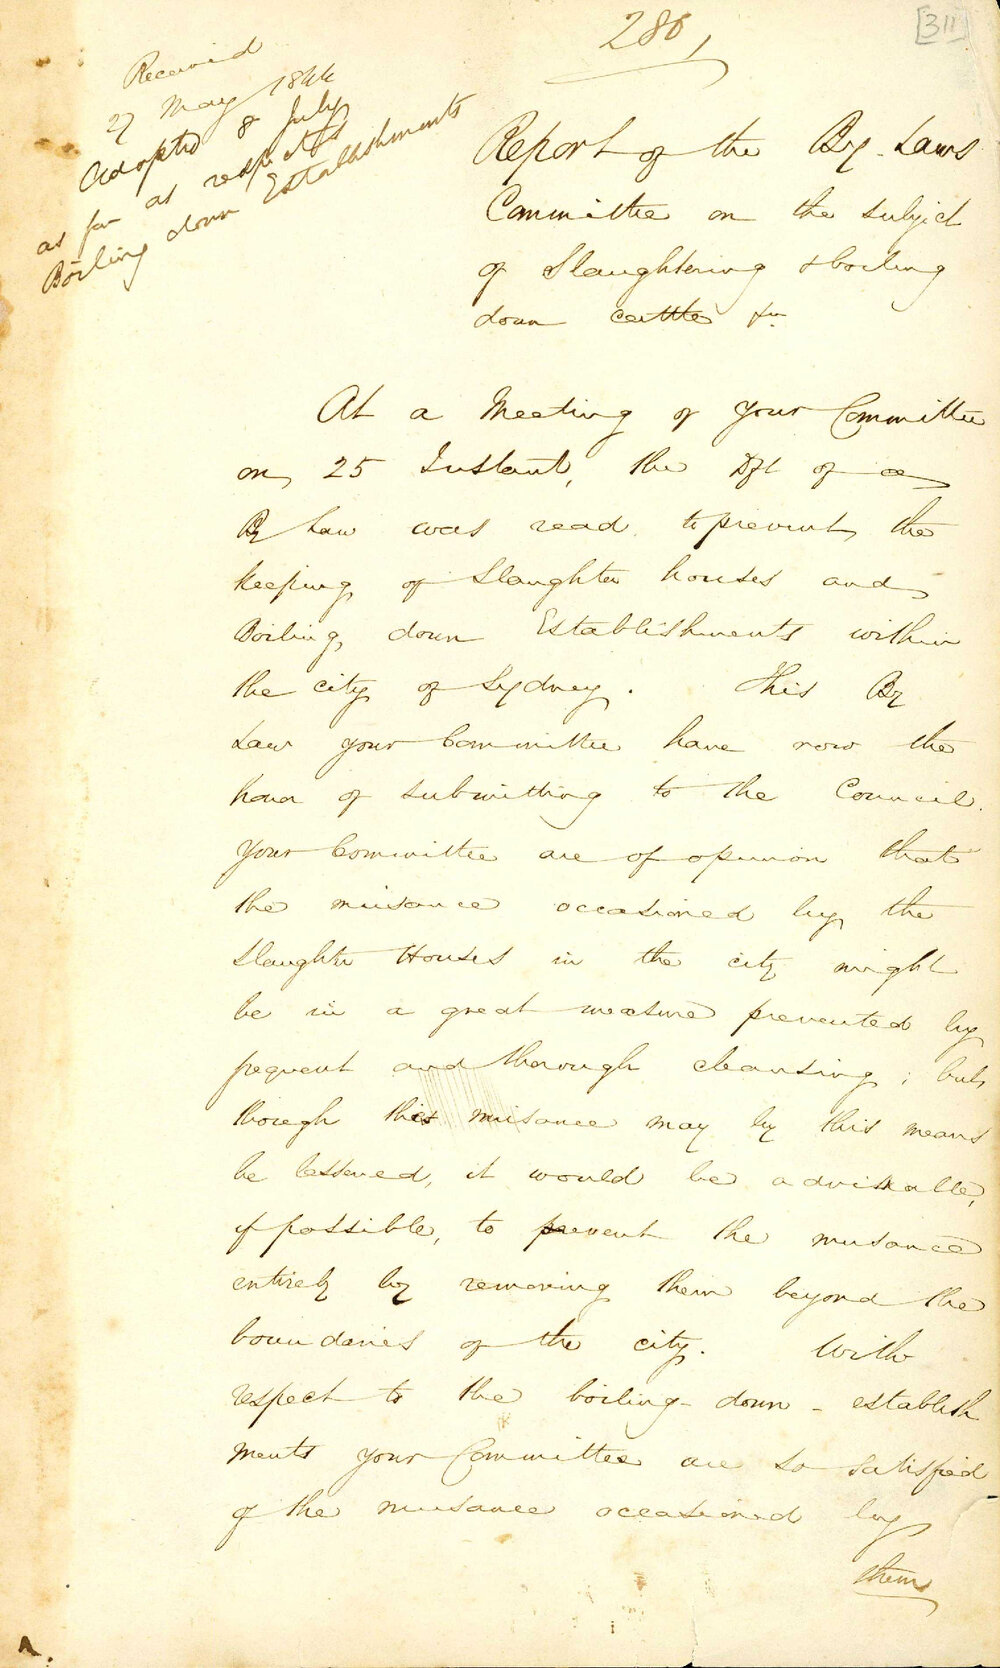 286,
[311]
Received
27 May 1844
Adopted 8 July
as far as respects
Boiling down Establishments
Report of the By-Laws
Committee on the subject
of Slaughtering & boiling
down cattle &c
At a Meeting of your Committee
on 25 Instant, the Dft of a
By Law was read to prevent the
keeping of Slaughter houses and
Boiling down Establishments within
the city of Sydney. This By
Law your Committee have now the
honor of submitting to the Council.
Your Committee are of opinion that
the nuisance occasioned by the
Slaughter Houses in the city might
be in a great measure prevented by
frequent and thorough cleansing; but
though this nuisance may by this means
be lessened, it would be advisable,
if possible, to prevent the nuisance
entirely by removing them beyond the
boundaries of the city. With
respect to the boiling-down-establish
ments your Committee are so satisfied
of the nuisance occasioned by
them